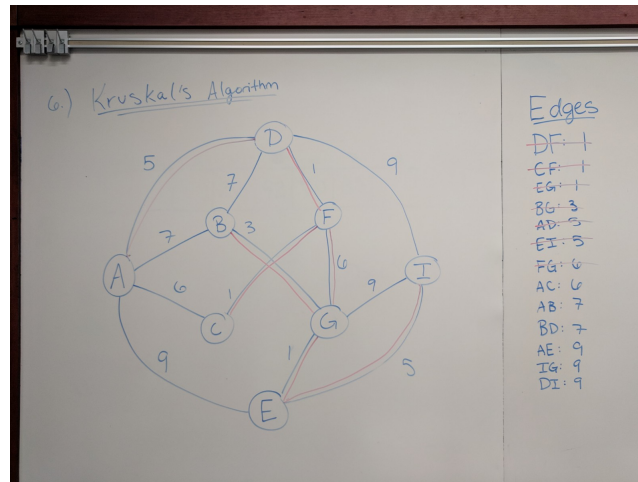 6.) Kruskal's Algorithm
D
5
1
9
7
B
3
F
7
A
6
6
I
9
1
C
G
9
1
5
E
Edges
DF: 1
CF: 1
EG: 1
BG: 3
AD: 5
EI: 5
FG: 6
AC: 6
AB: 7
BD: 7
AE: 9
IG: 9
DI: 9